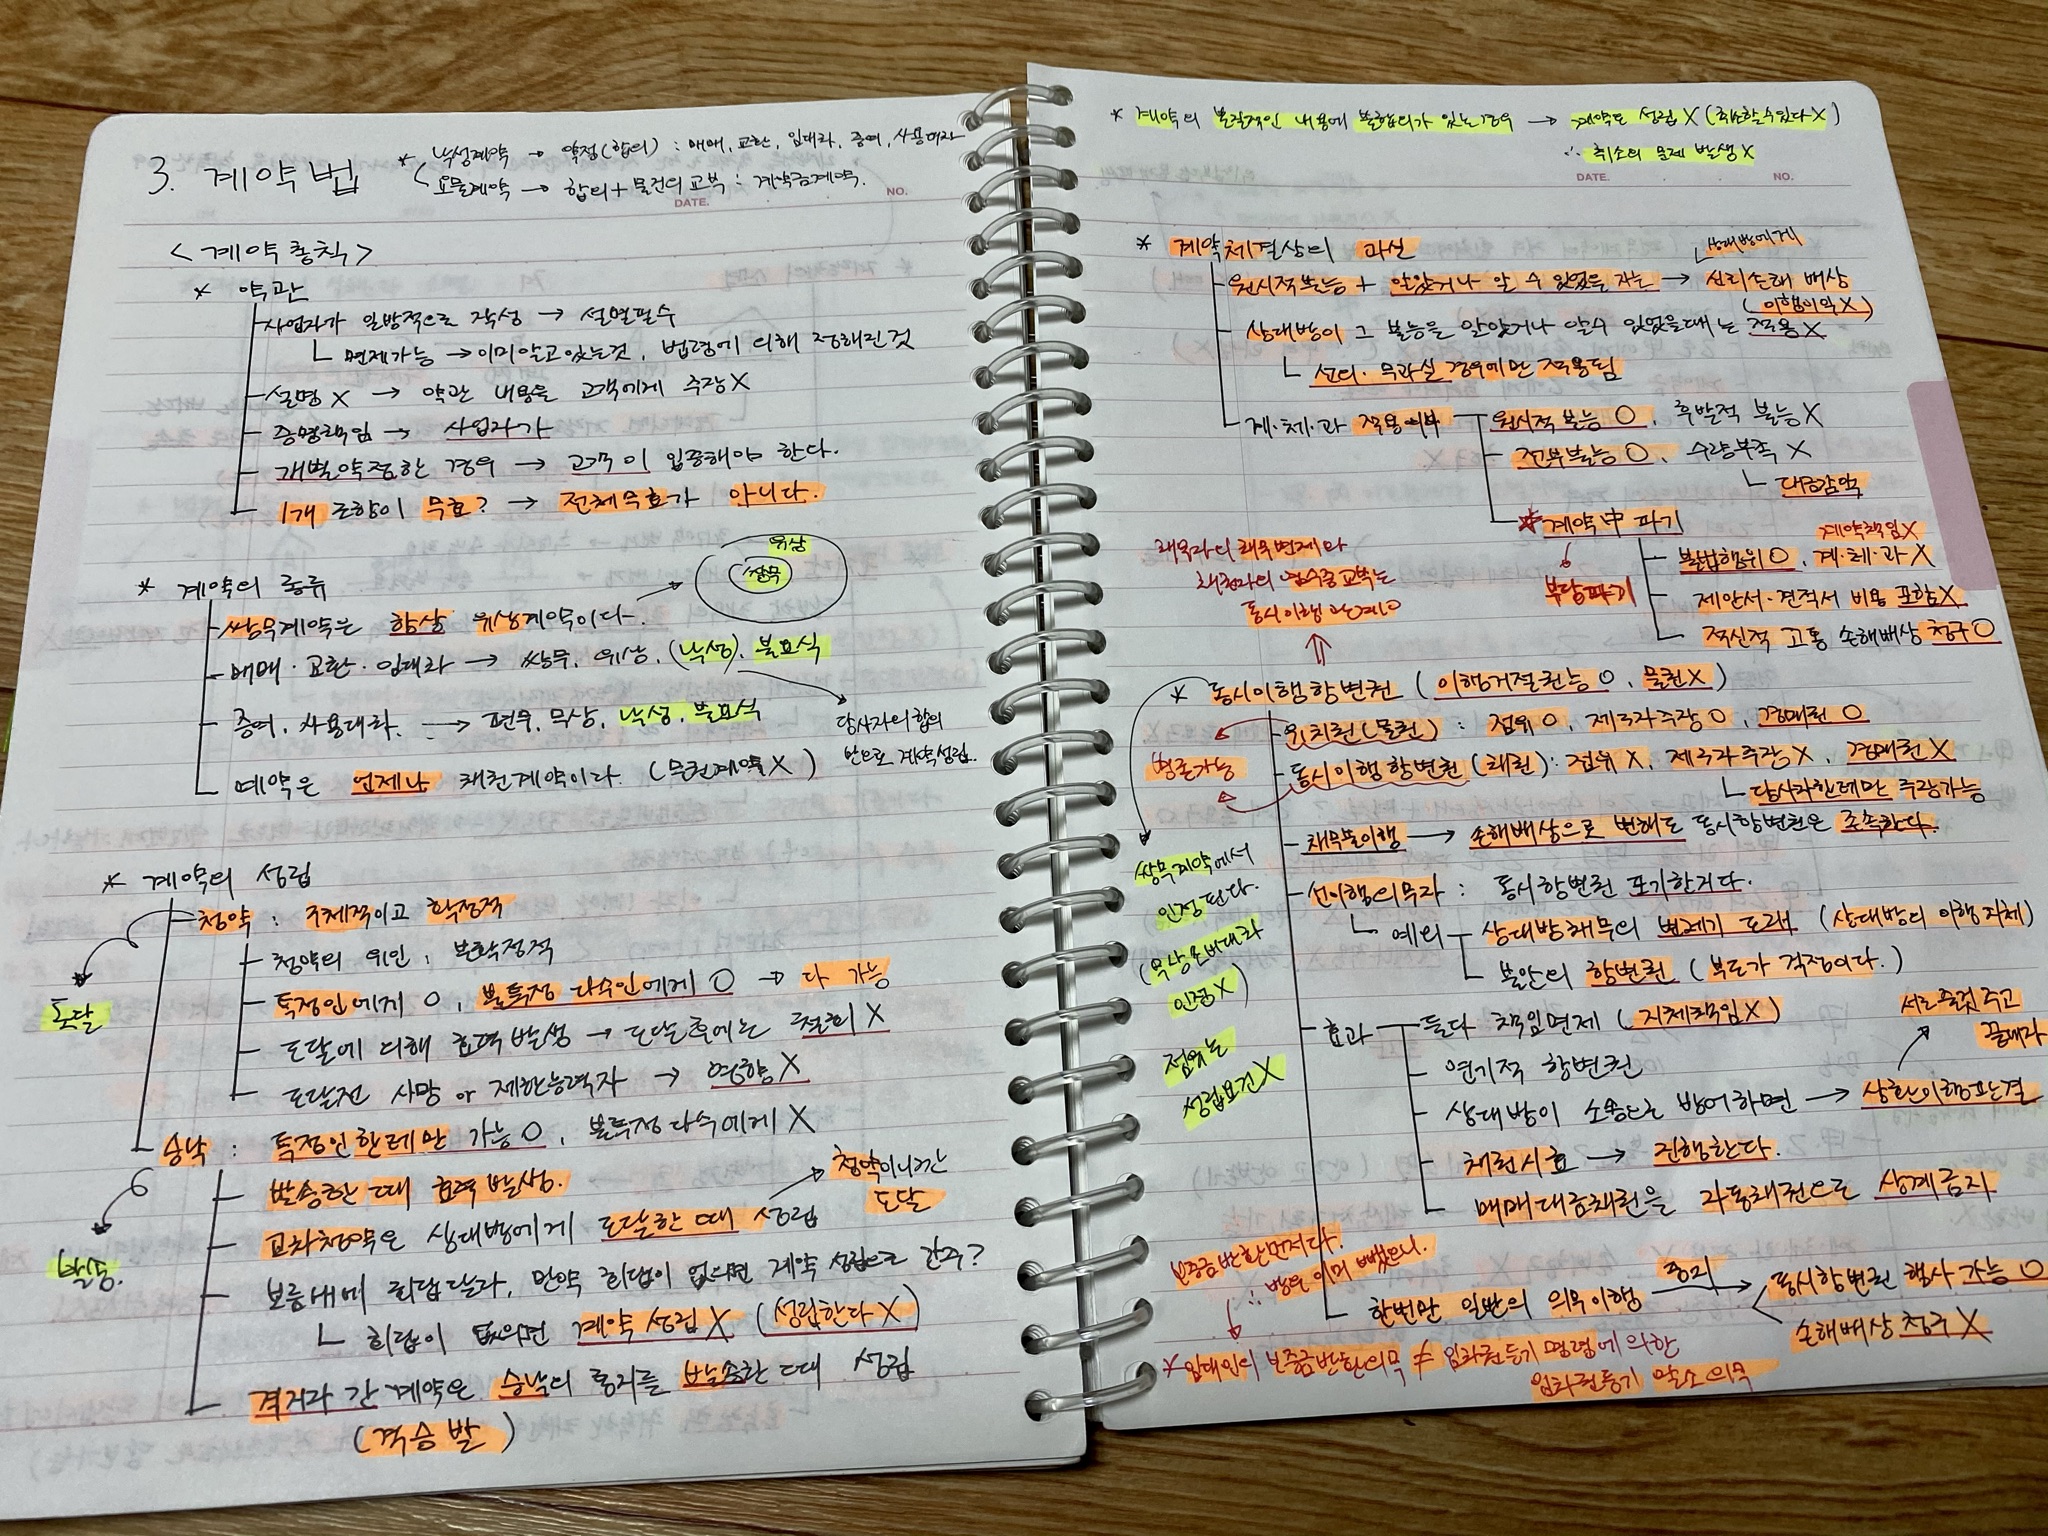 3. 계약법
* 낙성계약 → 약정(합의) : 매매, 교환, 임대차, 증여, 사용대차
요물계약 → 합의 + 물건의 교부 : 계약금계약.
DATE.
NO.
<계약총칙>
* 약관
사업자가 일방적으로 작성 → 설명필수
면제가능 → 이미알고있는것, 법령에 의해 정해진것
설명 X → 약관 내용을 고객에게 주장 X
증명책임 → 사업자가
개별약정한 경우 → 고객이 입증해야 한다.
1개 조항이 무효? → 전체무효가 아니다.
* 계약의 종류
유상
쌍무
쌍무계약은 항상 유상계약이다.
매매·교환·임대차 → 쌍무, 유상, (낙성), 불요식
증여, 사용대차. → 편무, 무상, 낙성, 불요식
당사자의 합의
만으로 계약성립.
예약은 언제나 채권계약이다. (물권계약 X)
* 계약의 성립
청약 : 구체적이고 확정적
도달
청약의 유인, 불확정적
특정인에게 O, 불특정 다수인에게 O → 다 가능
도달에 의해 효력발생 → 도달후에는 철회 X
도달전 사망 or 제한능력자 → 영향 X
승낙 : 특정인한테만 가능 O, 불특정다수에게 X
발송.
발송한 때 효력발생.
청약이니깐
도달
교차청약은 상대방에게 도달한 때 성립
보름내에 회답달라, 만약 회답이 없으면 계약 성립으로 간주?
회답이 없으면 계약 성립 X (성립한다 X)
격지자 간 계약은 승낙의 통지를 발송한 때 성립
(격승발)
* 계약의 본질적인 내용에 불합의가 있는 경우 → 계약은 성립 X (취소할수있다 X)
∴ 취소의 문제 발생 X
DATE.
NO.
* 계약체결상의 과실
상대방에게
원시적불능 + 알았거나 알 수 있었을 자는 → 신뢰손해 배상
(이행이익 X)
상대방이 그 불능을 알았거나 알수 있었을때는 적용 X
선의·무과실 경우에만 적용됨
계·체·과 적용여부
원시적 불능 O, 후발적 불능 X
전부불능 O, 수량부족 X
대금감액
* 계약中 파기
부당파기
계약책임 X
불법행위 O, 계·체·과 X
제안서·견적서 비용 포함 X
정신적 고통 손해배상 청구 O
채무자의 채무변제와
채권자의 영수증교부는
동시이행 관계 O
* 동시이행항변권 (이행거절권능 O, 물권 X)
유치권(물권) : 점유 O, 제3자주장 O, 경매권 O
병존가능
동시이행항변권(채권) : 점유 X, 제3자주장 X, 경매권 X
당사자한테만 주장가능
채무불이행 → 손해배상으로 변해도 동시항변권은 존속한다.
쌍무계약에서
인정된다.
점유는
성립요건 X
선이행의무자 : 동시항변권 포기한거다.
예외
상대방채무의 변제기 도래 (상대방의 이행지체)
불안의 항변권 (부도가 걱정이다.)
효과
둘다 책임면제 (지체책임 X)
서로줄것 주고
끝내라
연기적 항변권
상대방이 소송으로 방어하면 → 상환이행판결
채권시효 → 진행한다.
매매대금채권을 자동채권으로 상계금지
보증금반환먼저다.
∴ 방은 이미 뺐으니.
한번만 일방의 의무이행
중지
동시항변권 행사 가능 O
손해배상 청구 X
* 임대인의 보증금반환의무 ≠ 임차권등기 명령에 의한
임차권등기 말소의무